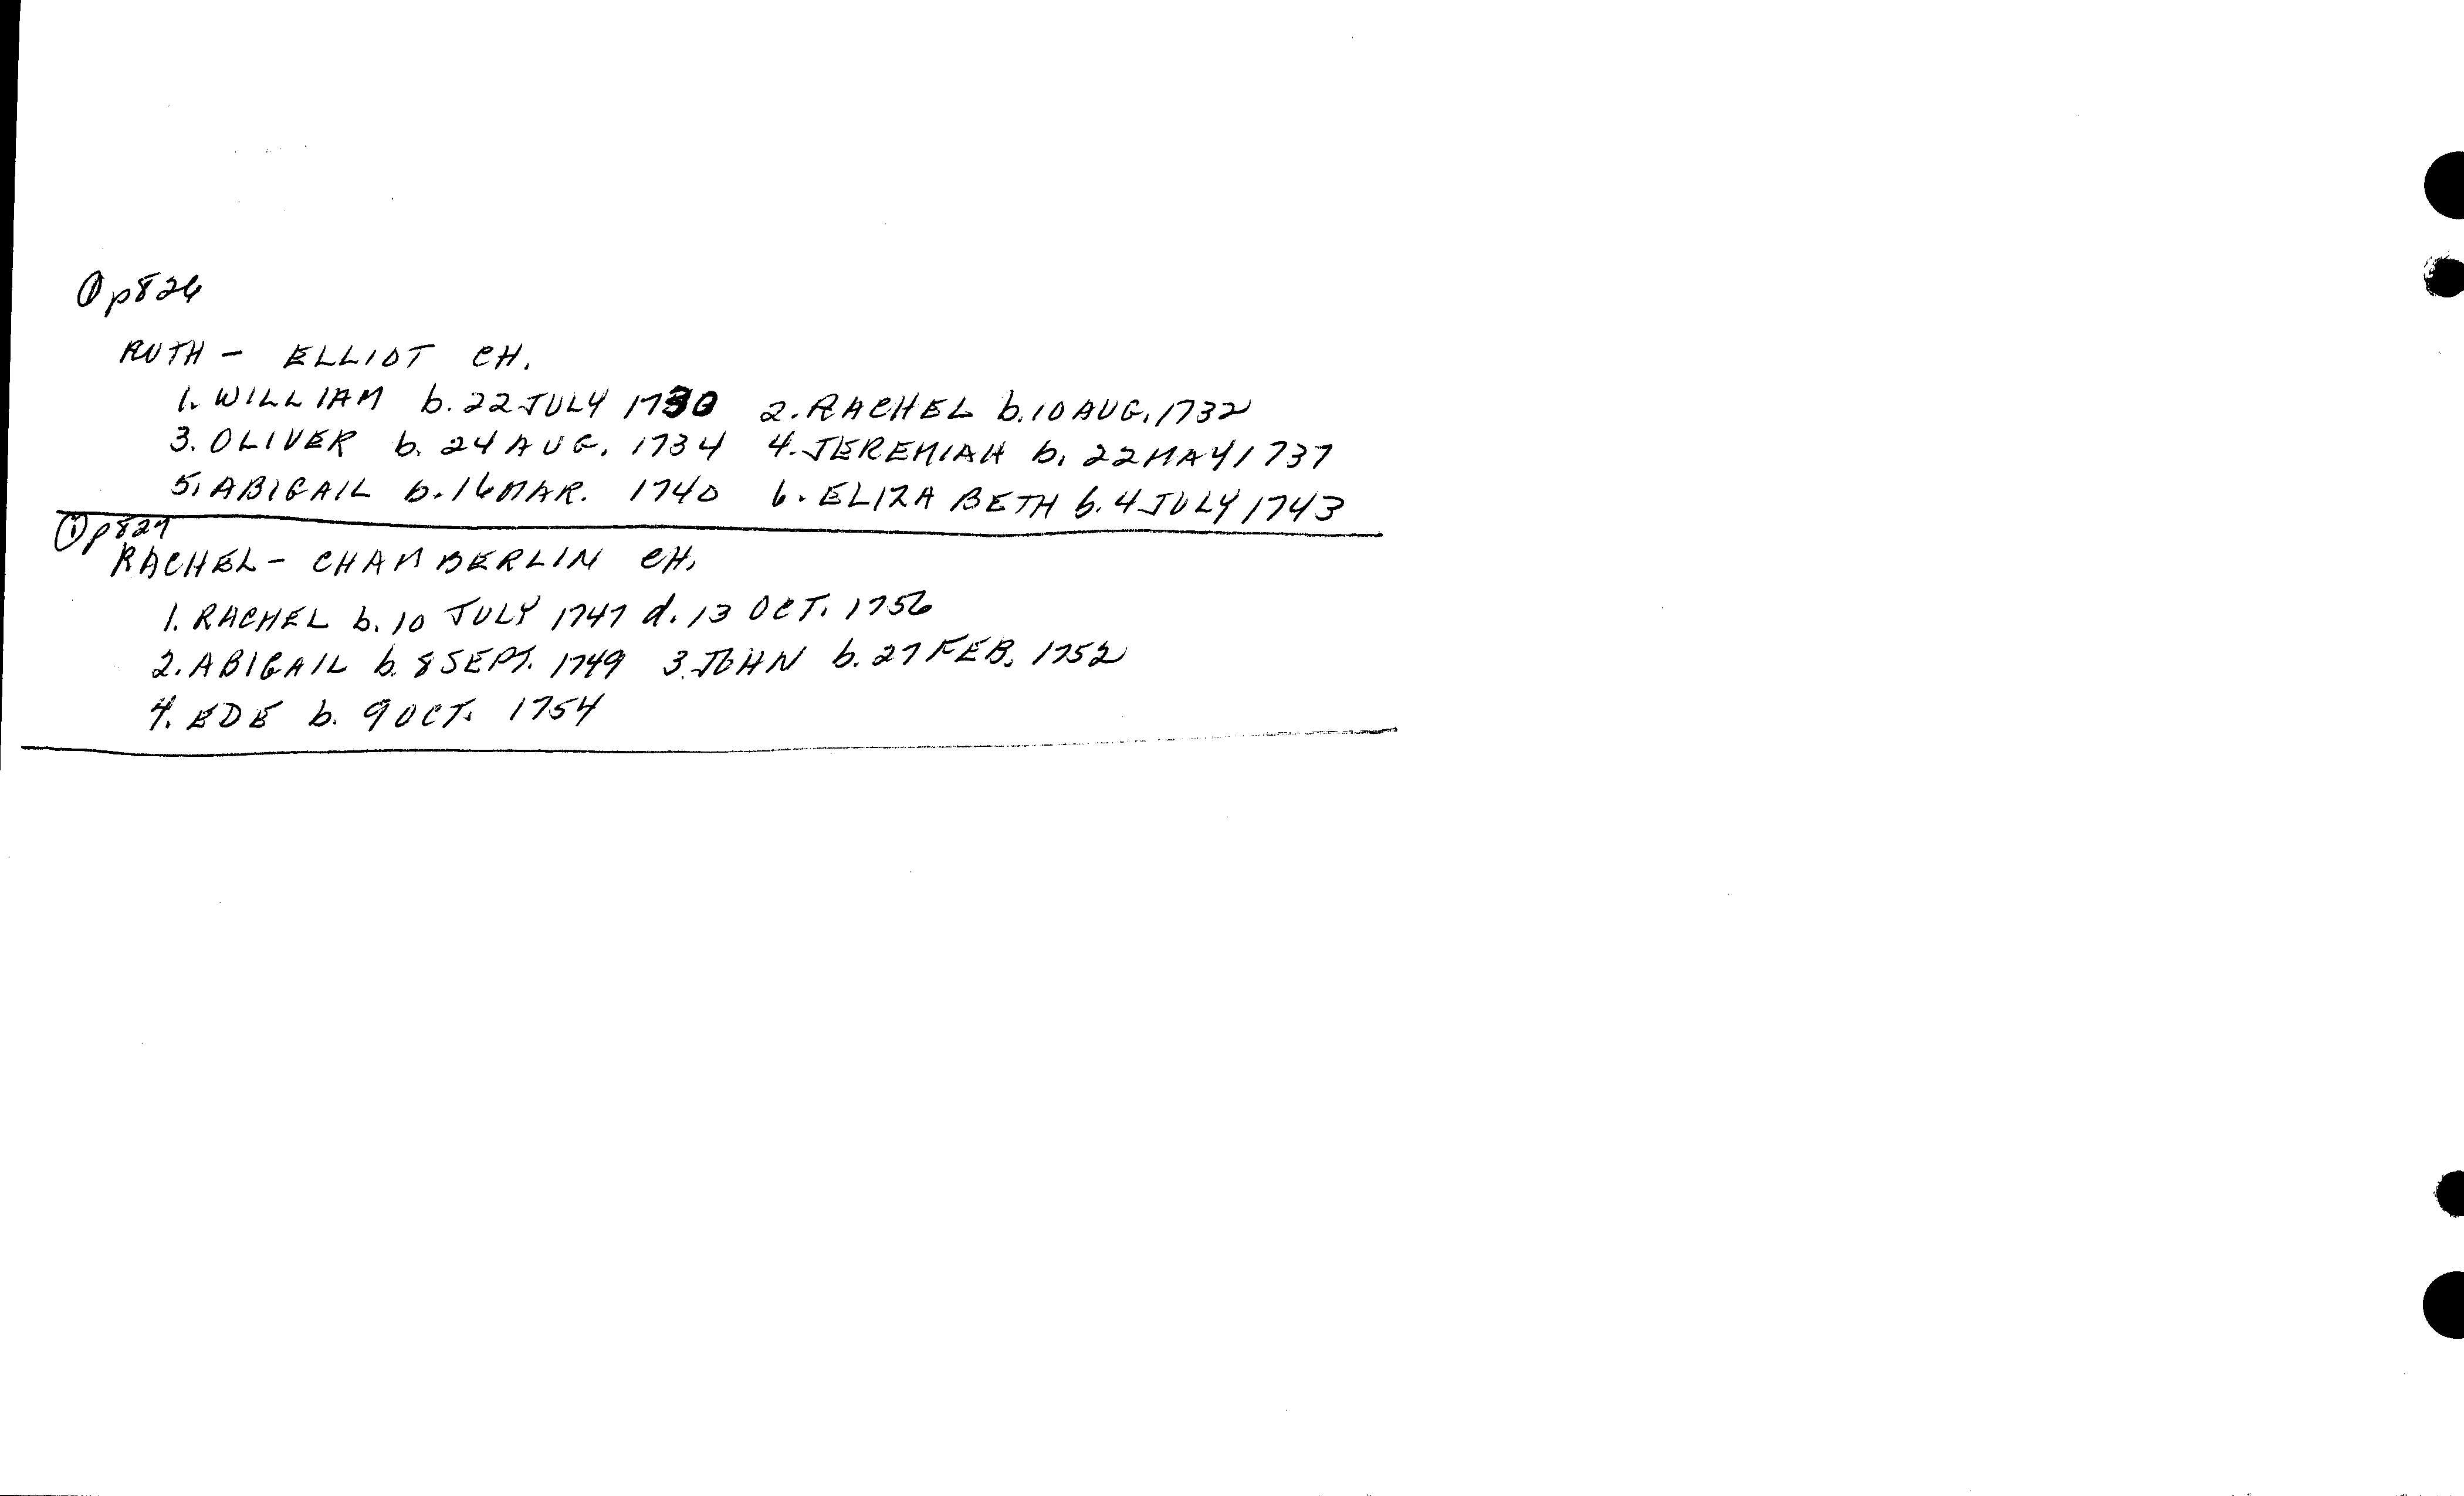 ① p826
RUTH - ELLIOT CH.
1. WILLIAM b. 22 JULY 1730 2. RACHEL b. 10 AUG. 1732
3. OLIVER b. 24 AUG. 1734 4. JEREMIAH b. 22 MAY 1737
5. ABIGAIL b. 16 MAR. 1740 6. ELIZABETH b. 4 JULY 1743
① p827
RACHEL - CHAMBERLIN CH.
1. RACHEL b. 10 JULY 1747 d. 13 OCT. 1756
2. ABIGAIL b. 8 SEPT. 1749 3. JOHN b. 27 FEB. 1752
4. EDE b. 9 OCT. 1754